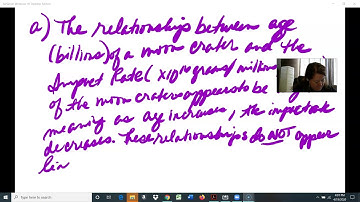 a) The relationship between age
(billions) of a moon crater and the
Impact Rate (x10¹⁰ grams/million
of the moon craters appears to be
meaning as age increases, the impact rate
decreases. These relationships do NOT appear
lin
Type here to search